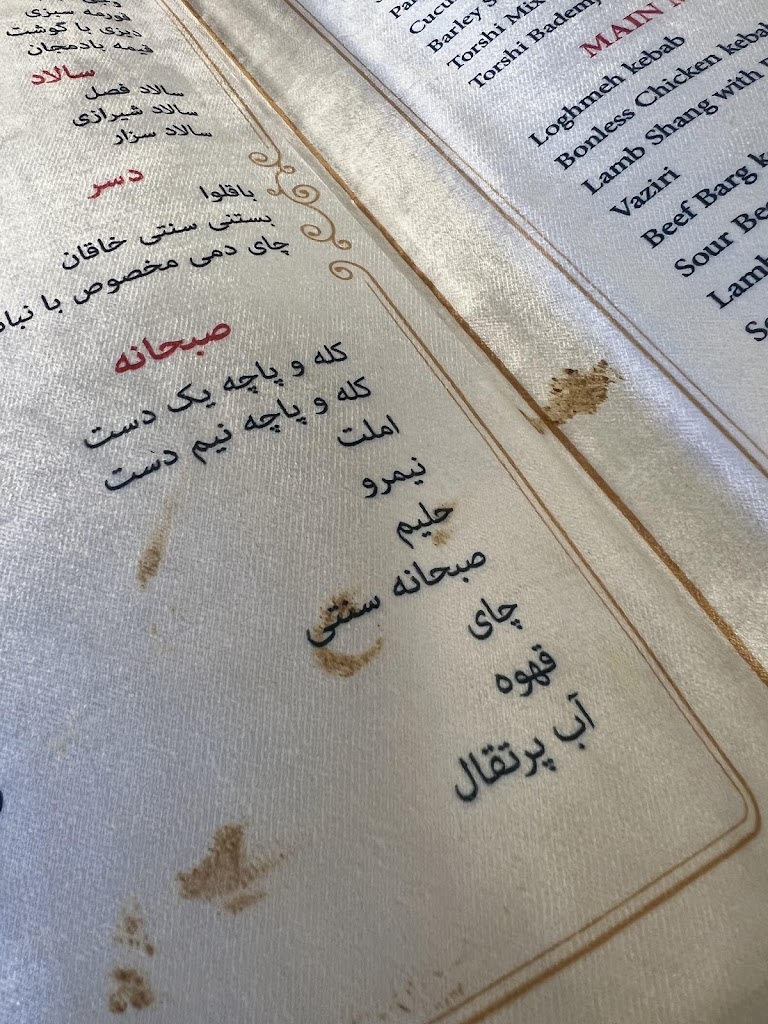 قورمه سبزی
دیزی با گوشت
قیمه بادمجان
سالاد
سالاد فصل
سالاد شیرازی
سالاد سزار
دسر
باقلوا
بستنی سنتی خاقان
چای دمی مخصوص با
صبحانه
کله و پاچه یک دست
کله و پاچه نیم دست
املت
نیمرو
حلیم
صبحانه سنتی
چای
قهوه
آب پرتقال
Barley
Torshi Mix
Torshi Bademj
MAIN
Loghmeh kebab
Bonless Chicken kebab
Lamb Shang with
Vaziri
Beef Barg
Sour
Lamb